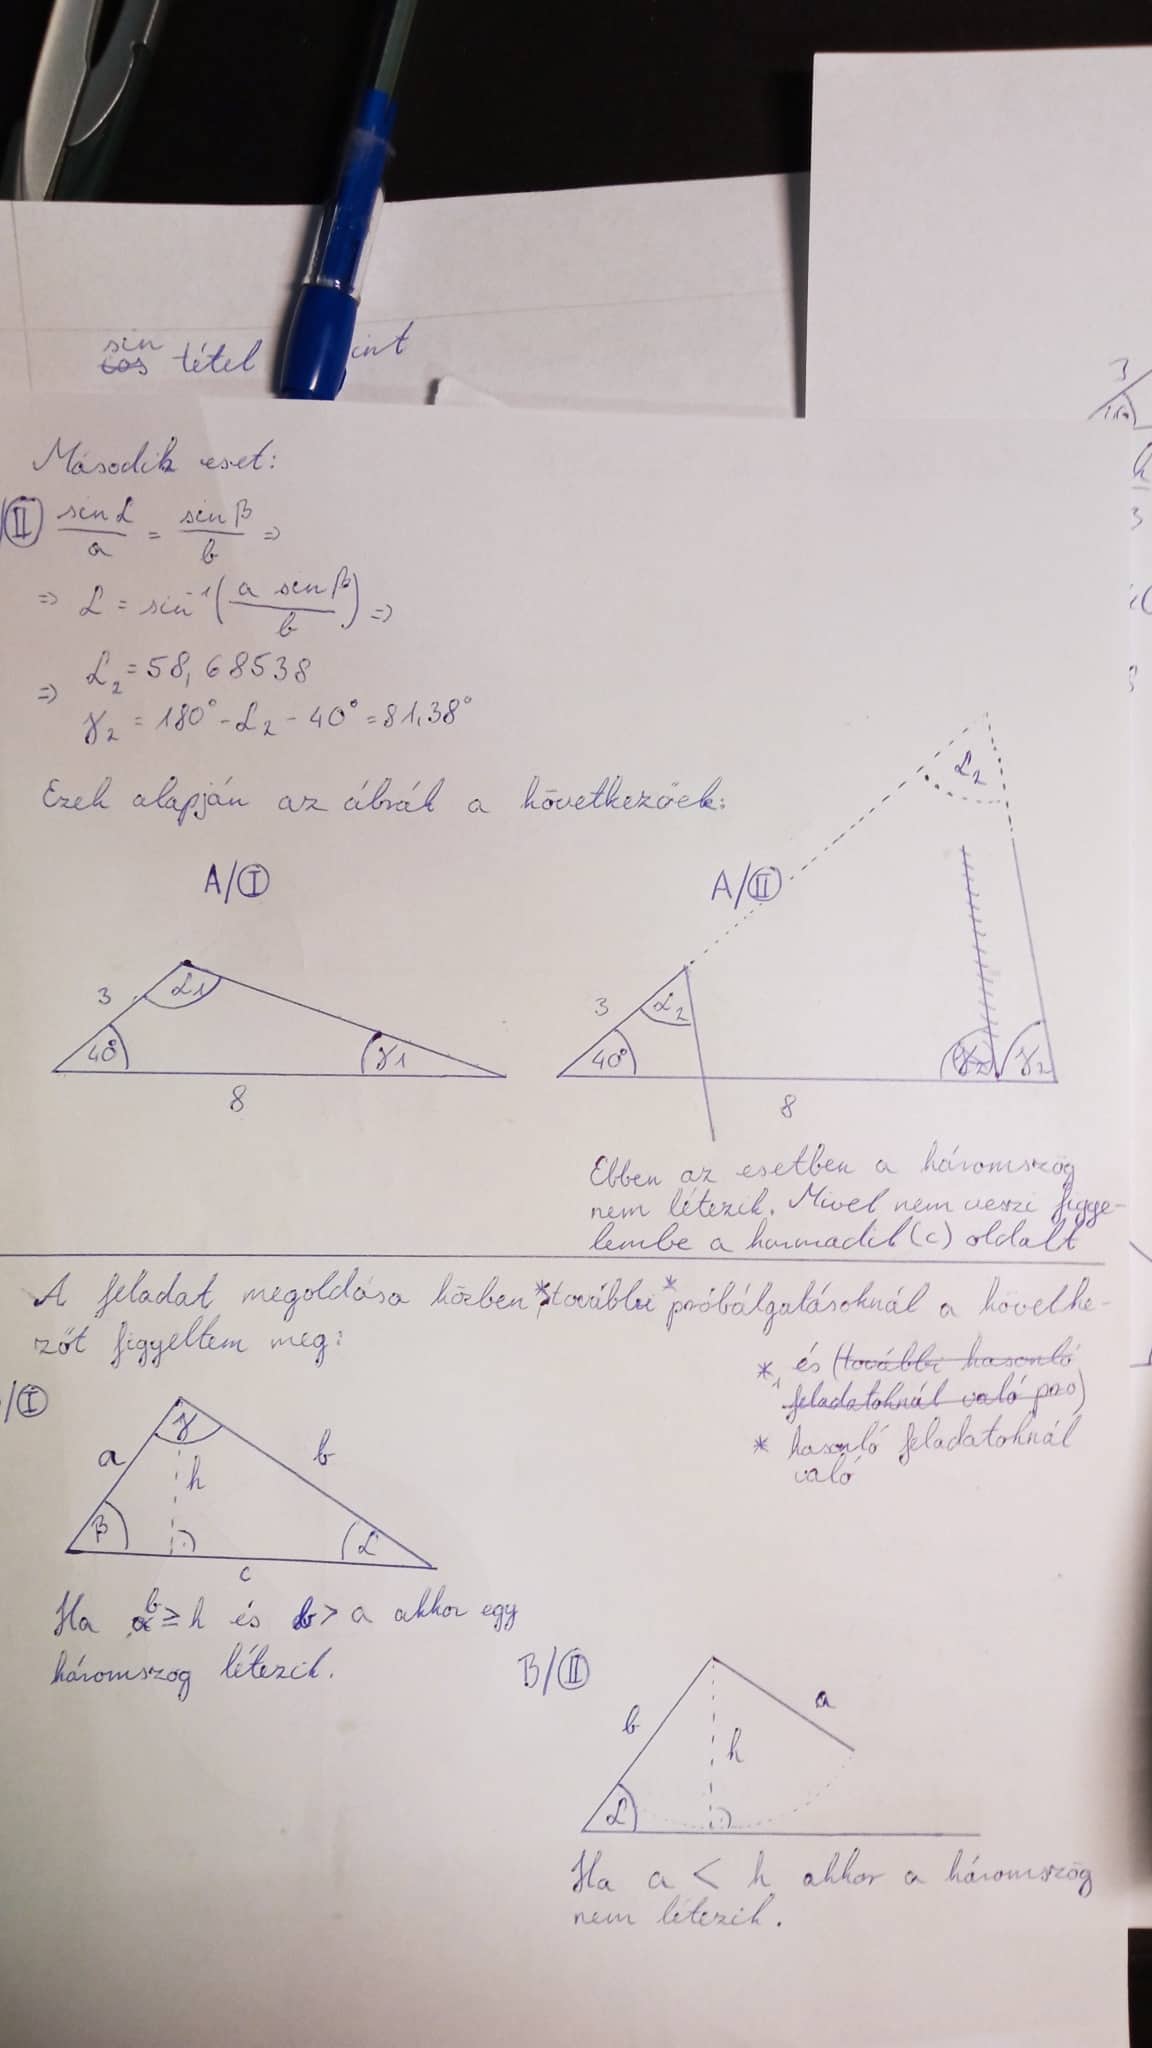 sin
cos tétel int
Második eset:
II sin α / a = sin β / b ⇒
⇒ α = sin⁻¹(a sin β / b) ⇒
⇒ α₂ = 58,68538
γ₂ = 180° - α₂ - 40° = 81,38°
Ezek alapján az ábrák a következőek:
A/I
A/II
α₂
3
α₁
40°
γ₁
8
3
α₂
40°
γ₂
γ₂
8
3
Ebben az esetben a háromszög
nem létezik. Mivel nem veszi figye-
lembe a harmadik (c) oldalt
A feladat megoldása közben * további * próbálgatásoknál a követke-
zőt figyeltem meg:
*₁ és (további hasonló
feladatoknál való pró)
* hasonló feladatoknál
való
/I
γ
a
b
h
β
α
c
Ha b ≥ h és b > a akkor egy
háromszög létezik.
B/II
b
a
h
α
Ha a < h akkor a háromszög
nem létezik.